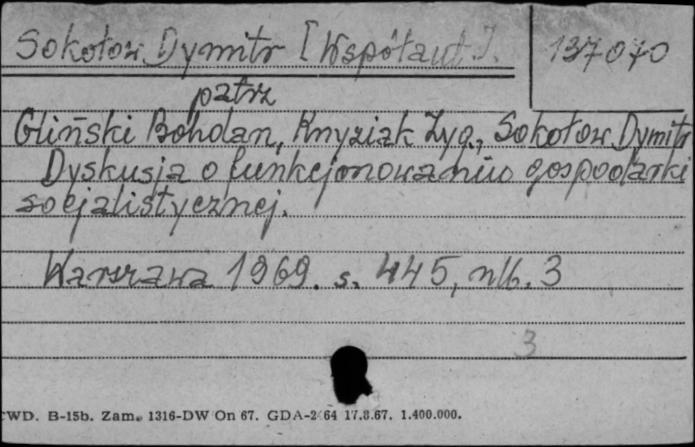 Sokołow Dymitr [Współaut.]. 137070
patrz
Gliński Bohdan, Knyziak Zyg., Sokołow Dymitr
Dyskusja o funkcjonowaniu gospodarki
socjalistycznej.
Warszawa 1969. s. 445, nlb. 3
3
CWD. B-15b. Zam. 1316-DW On 67. GDA-2 64 17.8.67. 1.400.000.